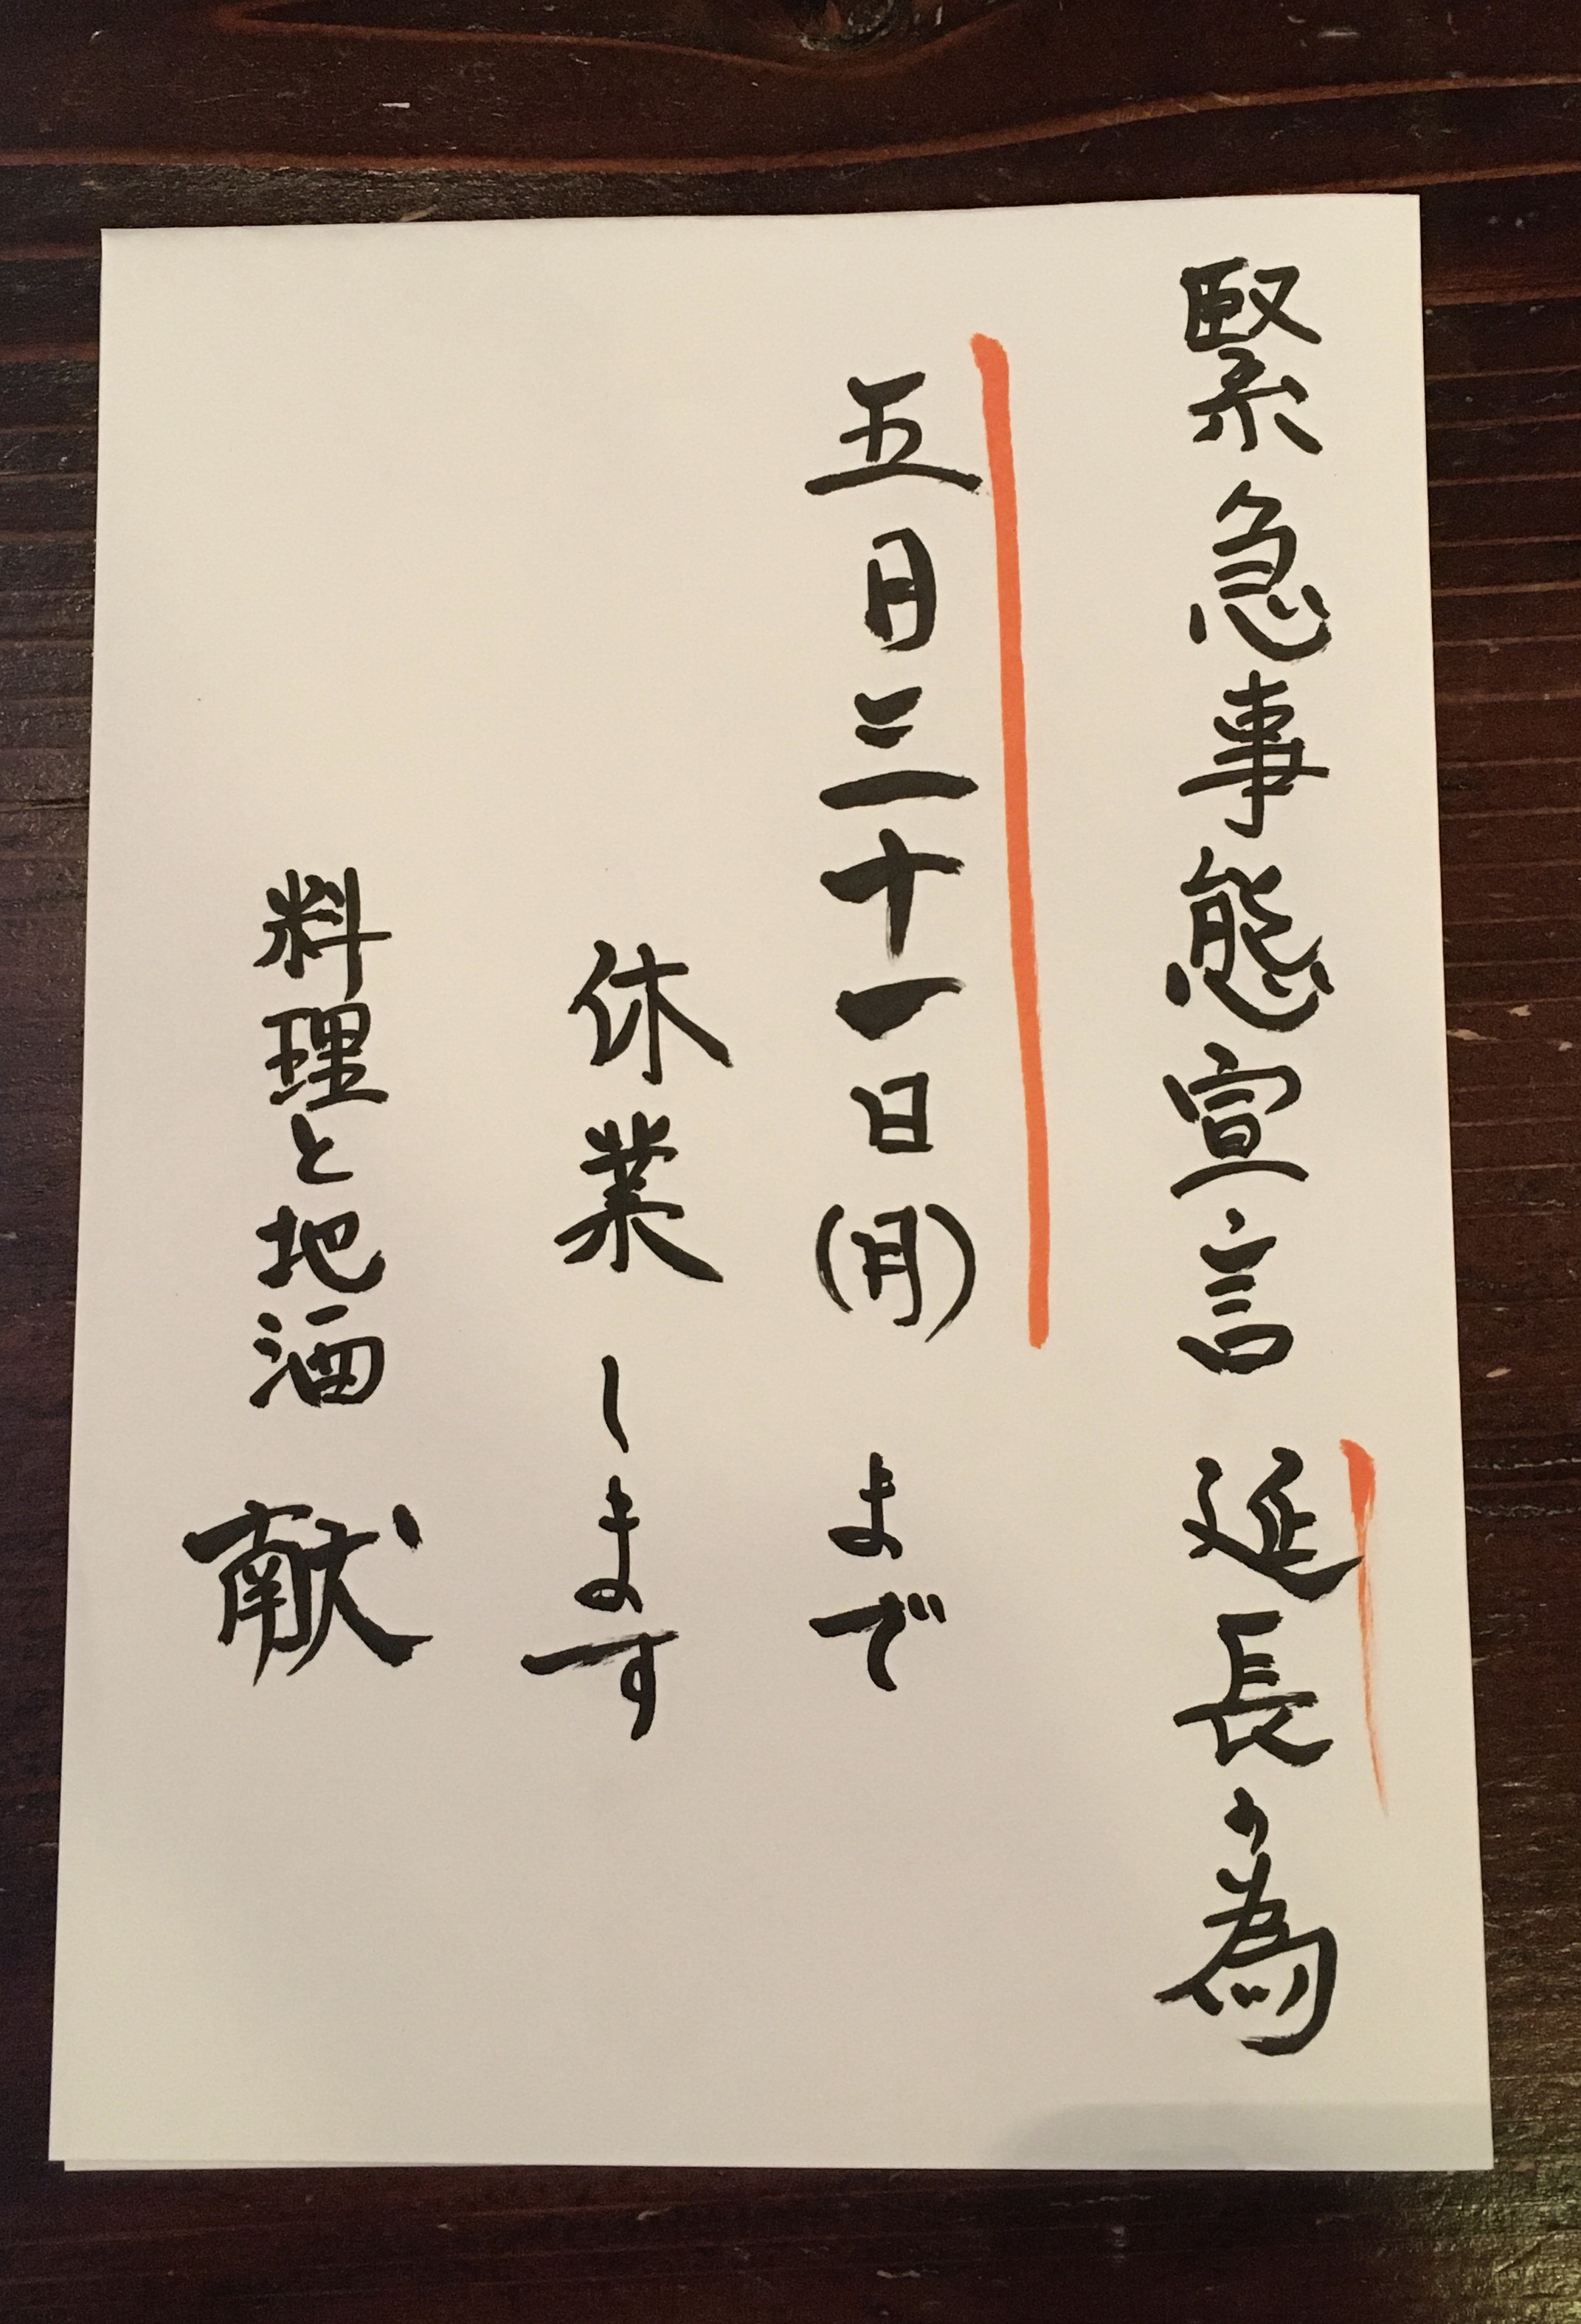 緊急事態宣言 延長の為
五月三十一日(月) まで
休業 します
料理と地酒 献